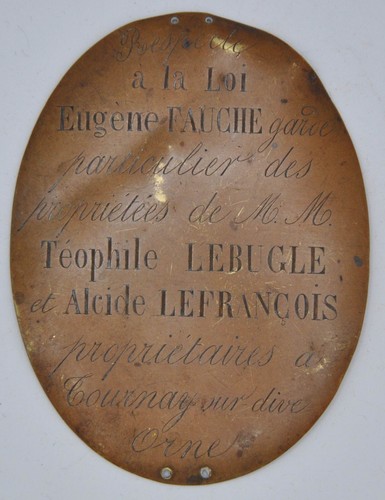 Respect
à la Loi
Eugène FAUCHE garde
particulier des
propriétées de M. M.
Téophile LEBUGLE
et Alcide LEFRANÇOIS
propriétaires à
Tournay sur dive
Orne